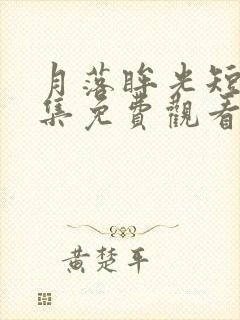 月落眸光短
集免費觀看
黃楚平